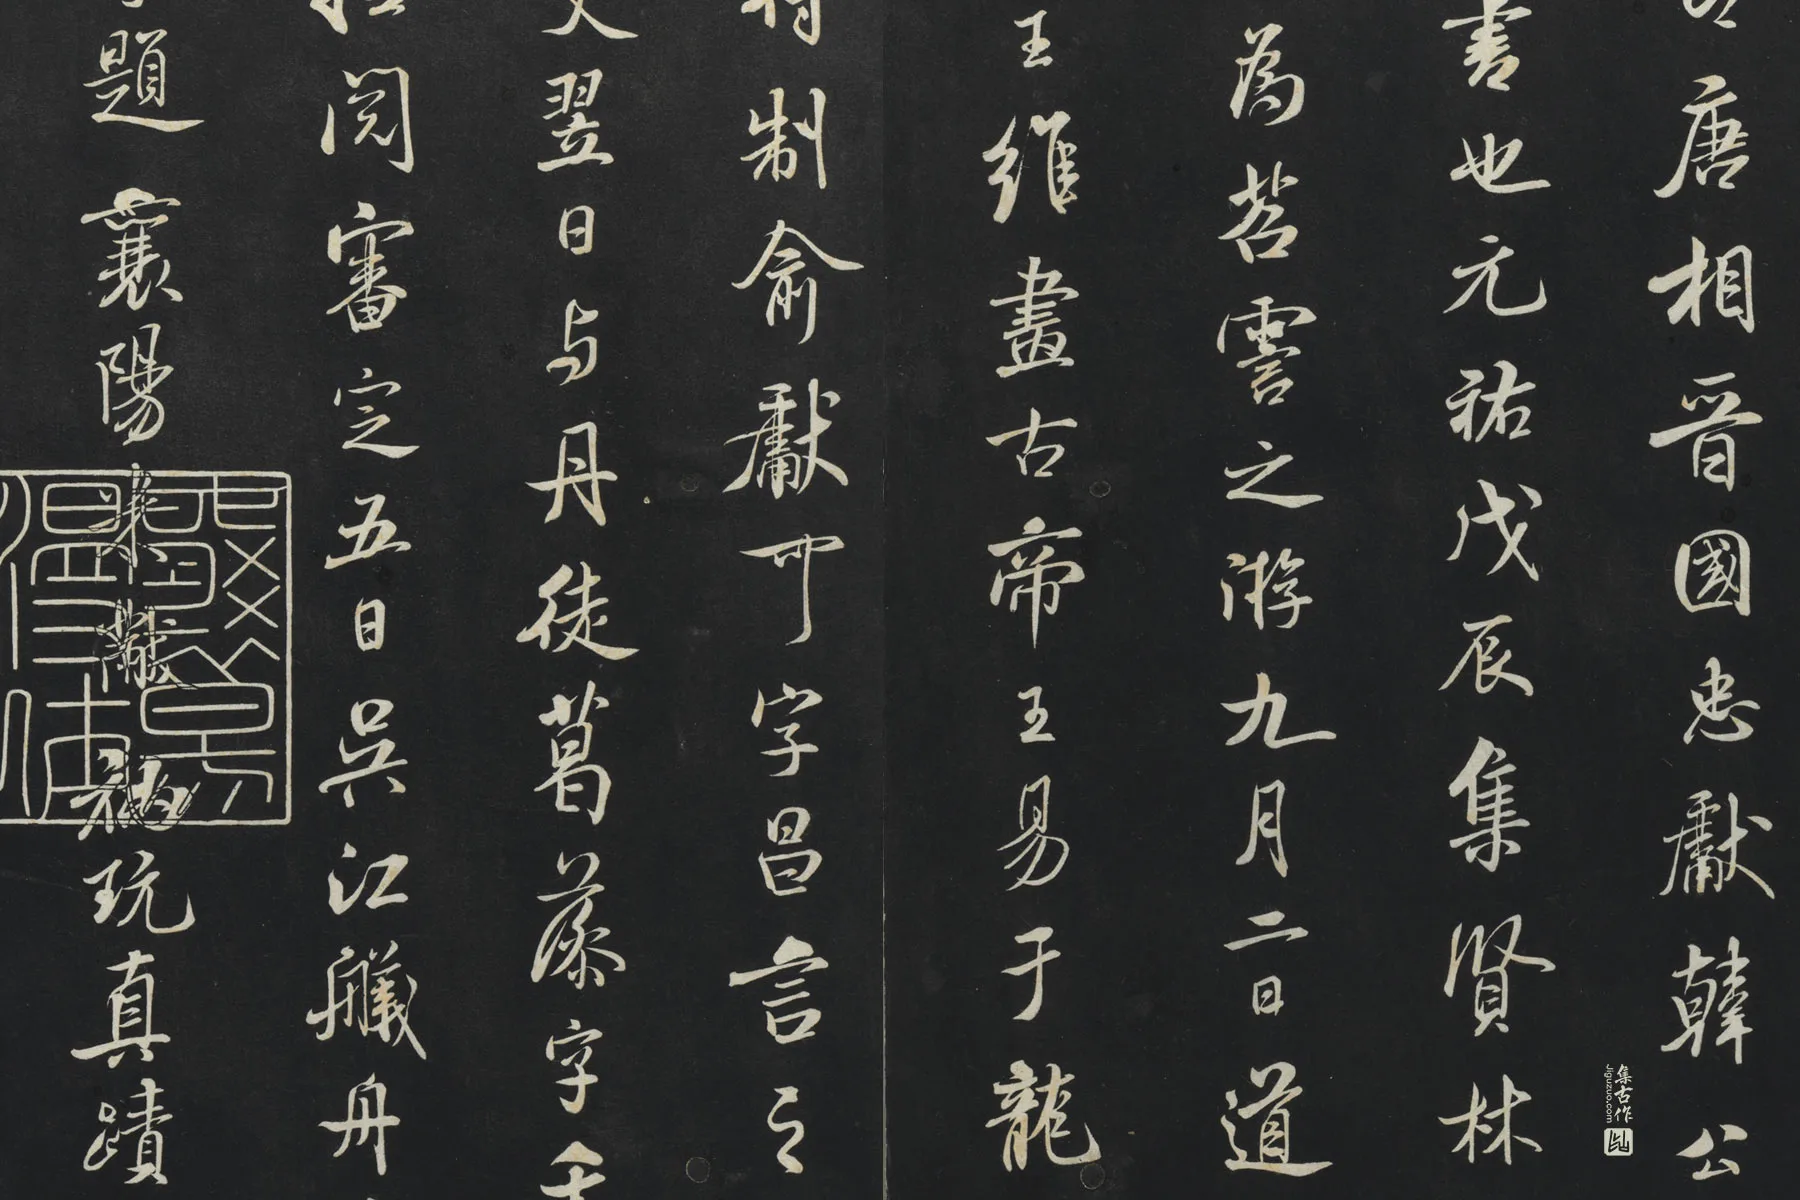 唐相晉國忠獻韓公
書也元祐戊辰集賢林
為苕霅之游九月二日道
王維畫古帝王易于龍
制俞獻可字昌言之
翌日与丹徒葛藻字
閱審定五日吳江艤舟
題襄陽米黻秘玩真蹟
集古作
Jiguzuo.com